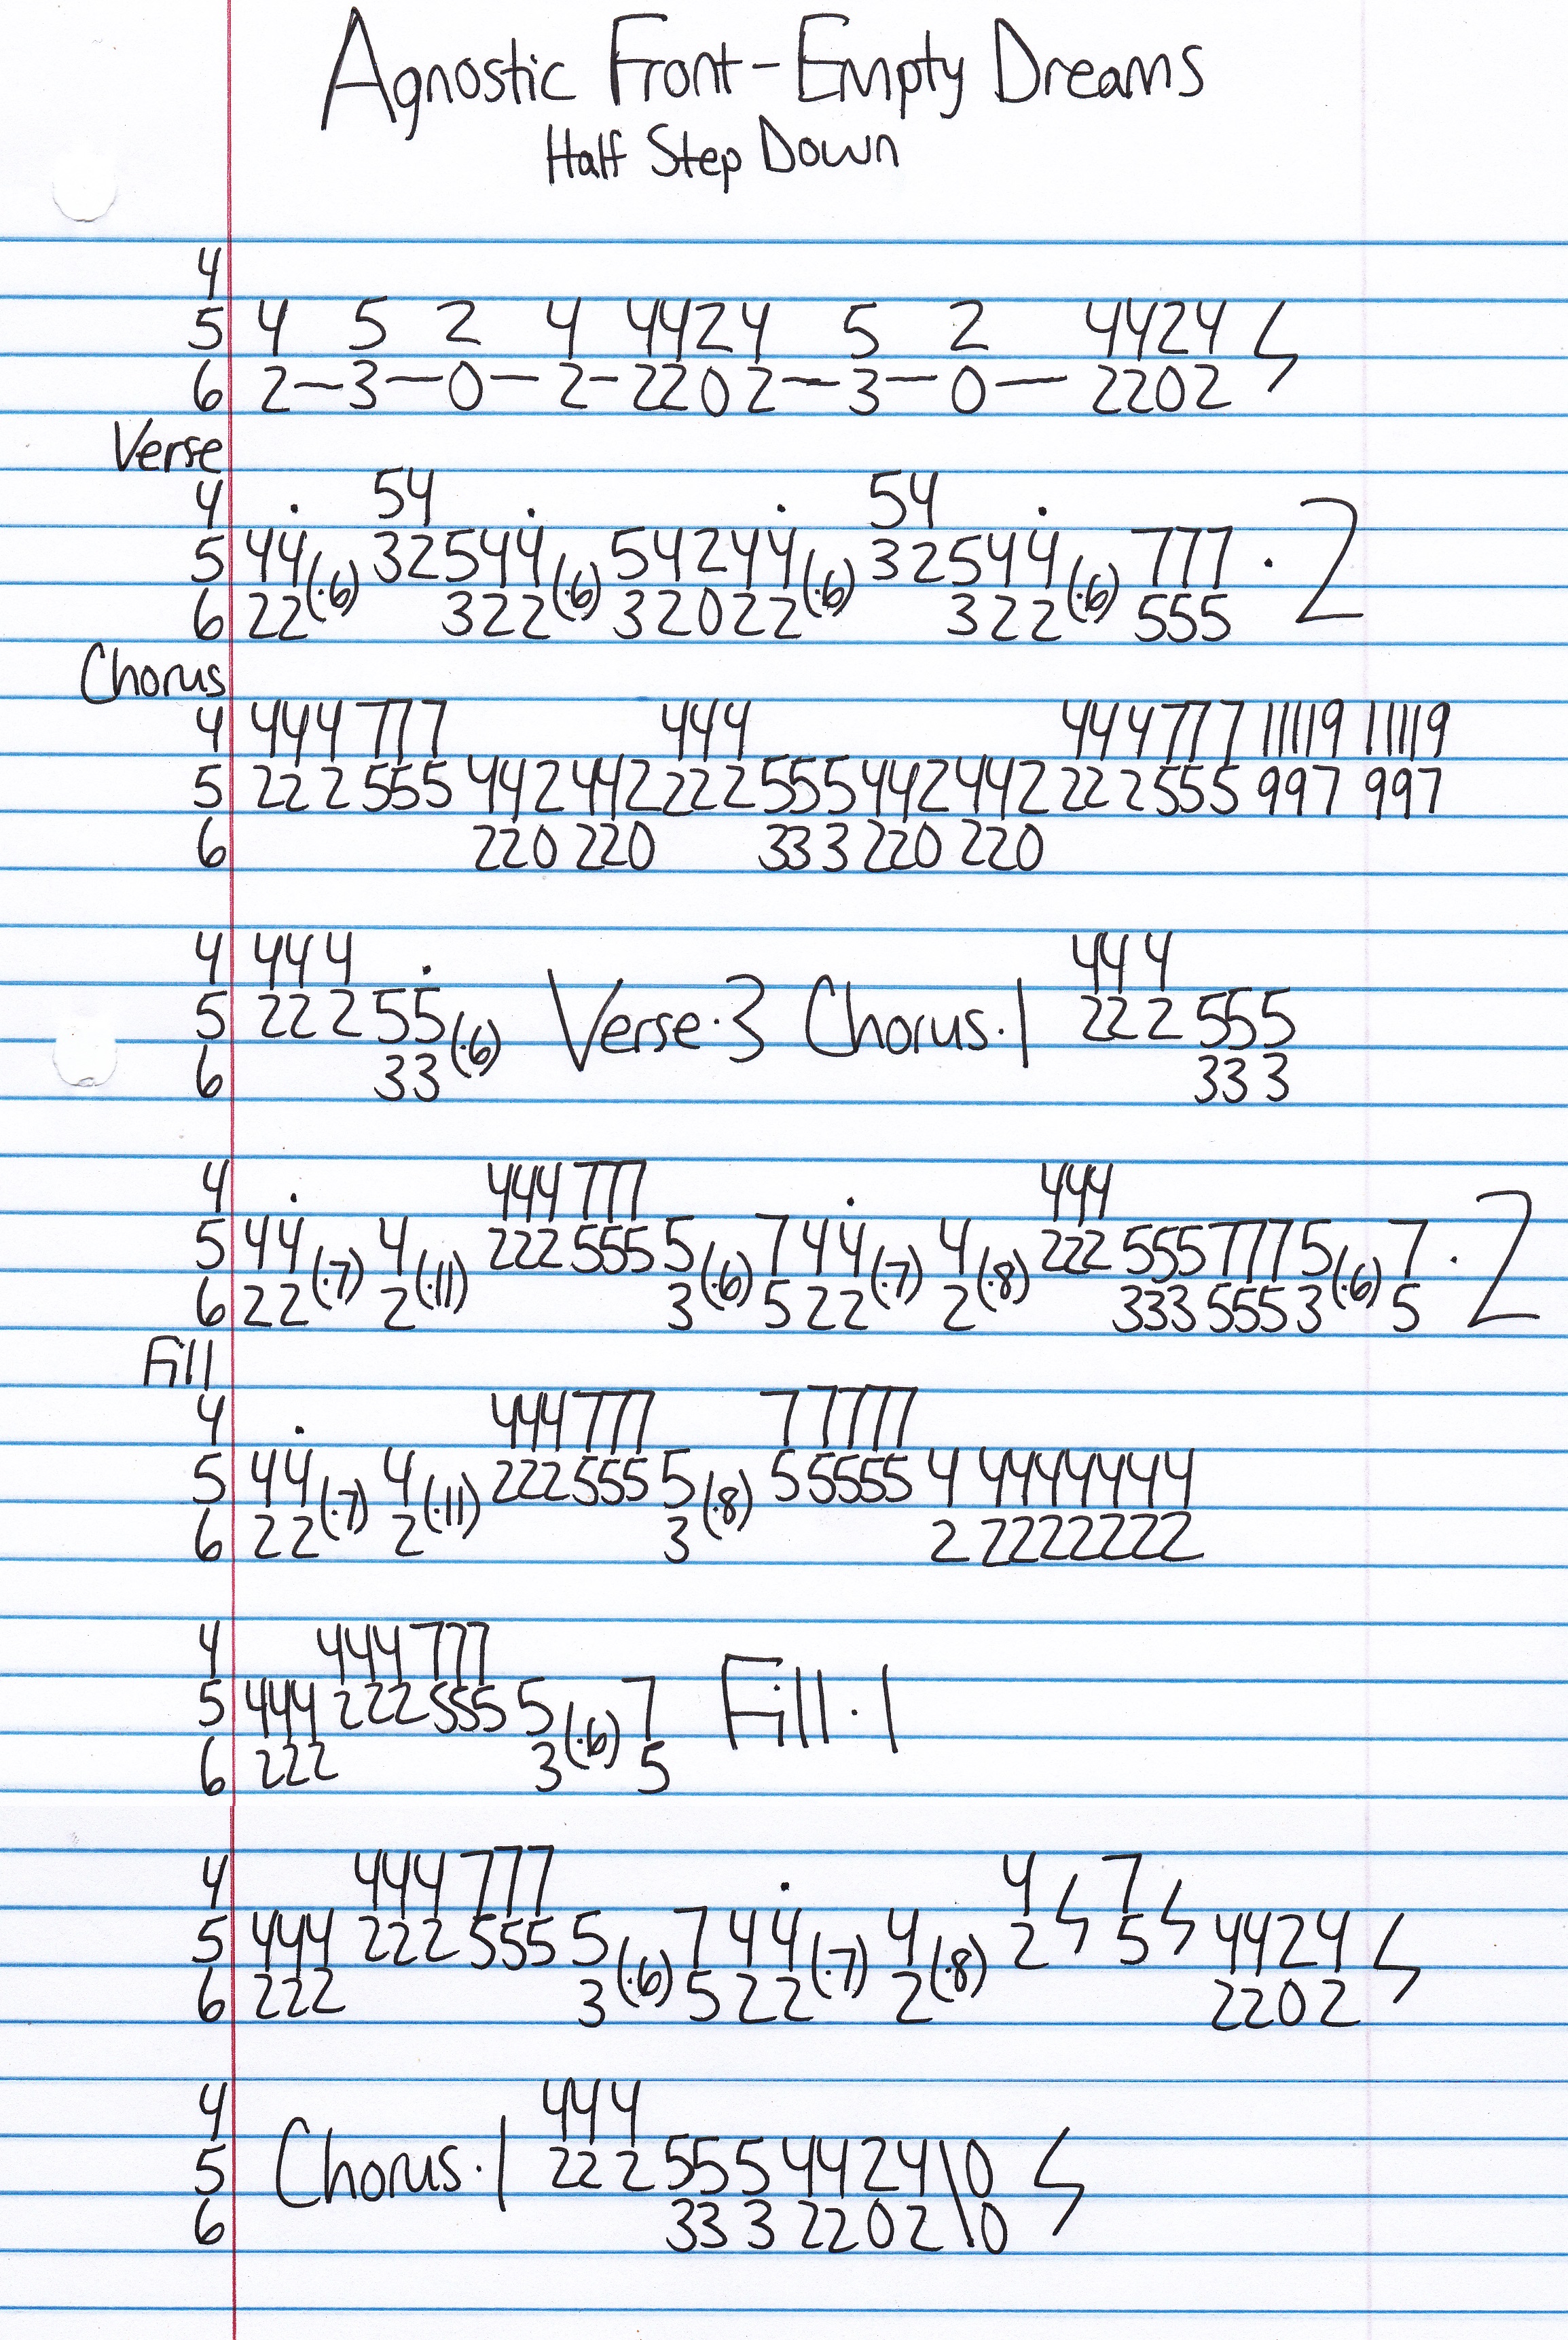 Agnostic Front - Empty Dreams
Half Step Down
4
5 4 5 2 4 4424 5 2 4424
6 2-3-0-2-2202-3-0- 2202
Verse
4 54 54
5 44(·6) 32544(·6) 54244(·6) 32544(·6) 777 · 2
6 22 322 32022 322 555
Chorus
4 444 777 444 444 777 11119 11119
5 222 555 442 442 222 555 442 442 222 555 997 997
6 220 220 333 220 220
4 444 444
5 222 55(·6) Verse·3 Chorus·1 222 555
6 33 333
4 444 777 444
5 44(·7) 4(·11) 222 555 5(·6) 7 44(·7) 4(·8) 222 555 777 5(·6) 7 · 2
6 22 2 3 5 22 2 333 555 3 5
Fill
4 444 777 7 7777
5 44(·7) 4(·11) 222 555 5(·8) 5 5555 4 4444444
6 22 2 3 2 2222222
4 444 777
5 444 222 555 5(·6) 7 Fill·1
6 222 3 5
4 444 777 4 7
5 444 222 555 5(·6) 7 44(·7) 4(·8) 2 5 4424
6 222 3 5 22 2 2202
4 444
5 Chorus·1 222 555 4424\0
6 333 2202\0